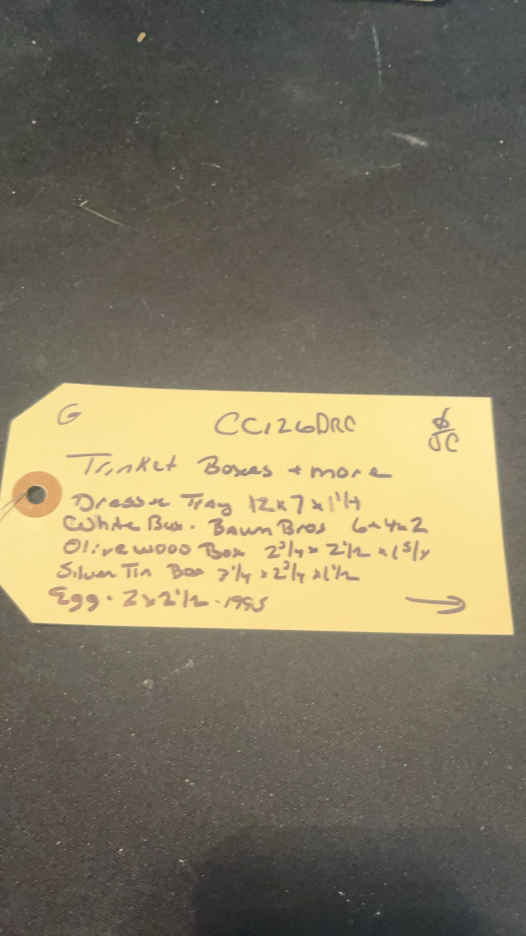 G CC126DRC
JC
Trinket Boxes + more
Dresser Tray 12x7x1 1/4
White Box. Baum Bros 6x4x2
Olivewood Box 2 3/4 x 2 1/2 x
Silver Tin Box 2 3/4 x 1 1/2
Egg. 2x2 1/2 - 1985
→